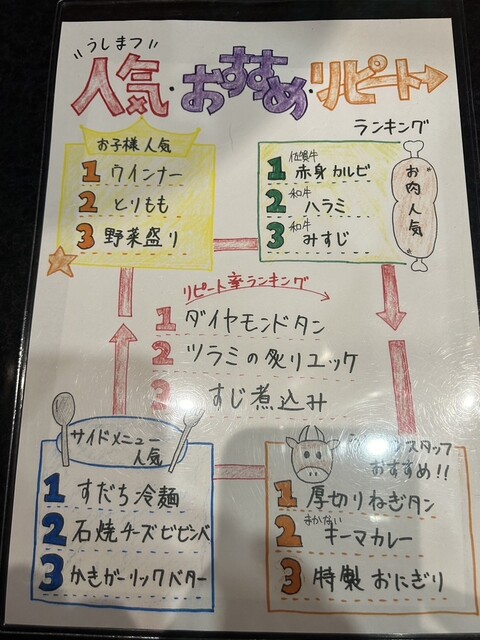 "うしまつ"
人気・おすすめ・リピート
ランキング
お子様人気
1 ウインナー
2 とりもも
3 野菜盛り
佐賀牛
1 赤身カルビ
和牛
2 ハラミ
和牛
3 みすじ
"お肉人気"
リピート率ランキング
1 ダイヤモンドタン
2 ツラミの炙りユッケ
3 すじ煮込み
サイドメニュー
人気
1 すだち冷麺
2 石焼チーズビビンバ
3 かきガーリックバター
スタッフ
おすすめ!!
1 厚切りねぎタン
まかない
2 キーマカレー
3 特製おにぎり